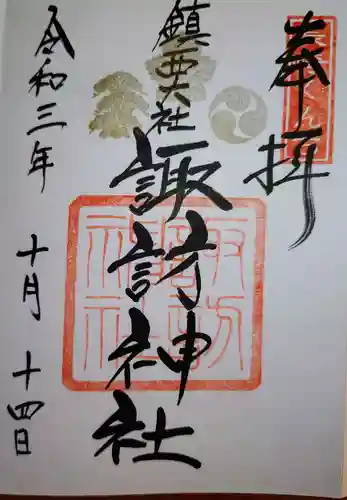 奉拝
鎮西大社
諏訪神社
令和三年
十月十四日
諏訪神社